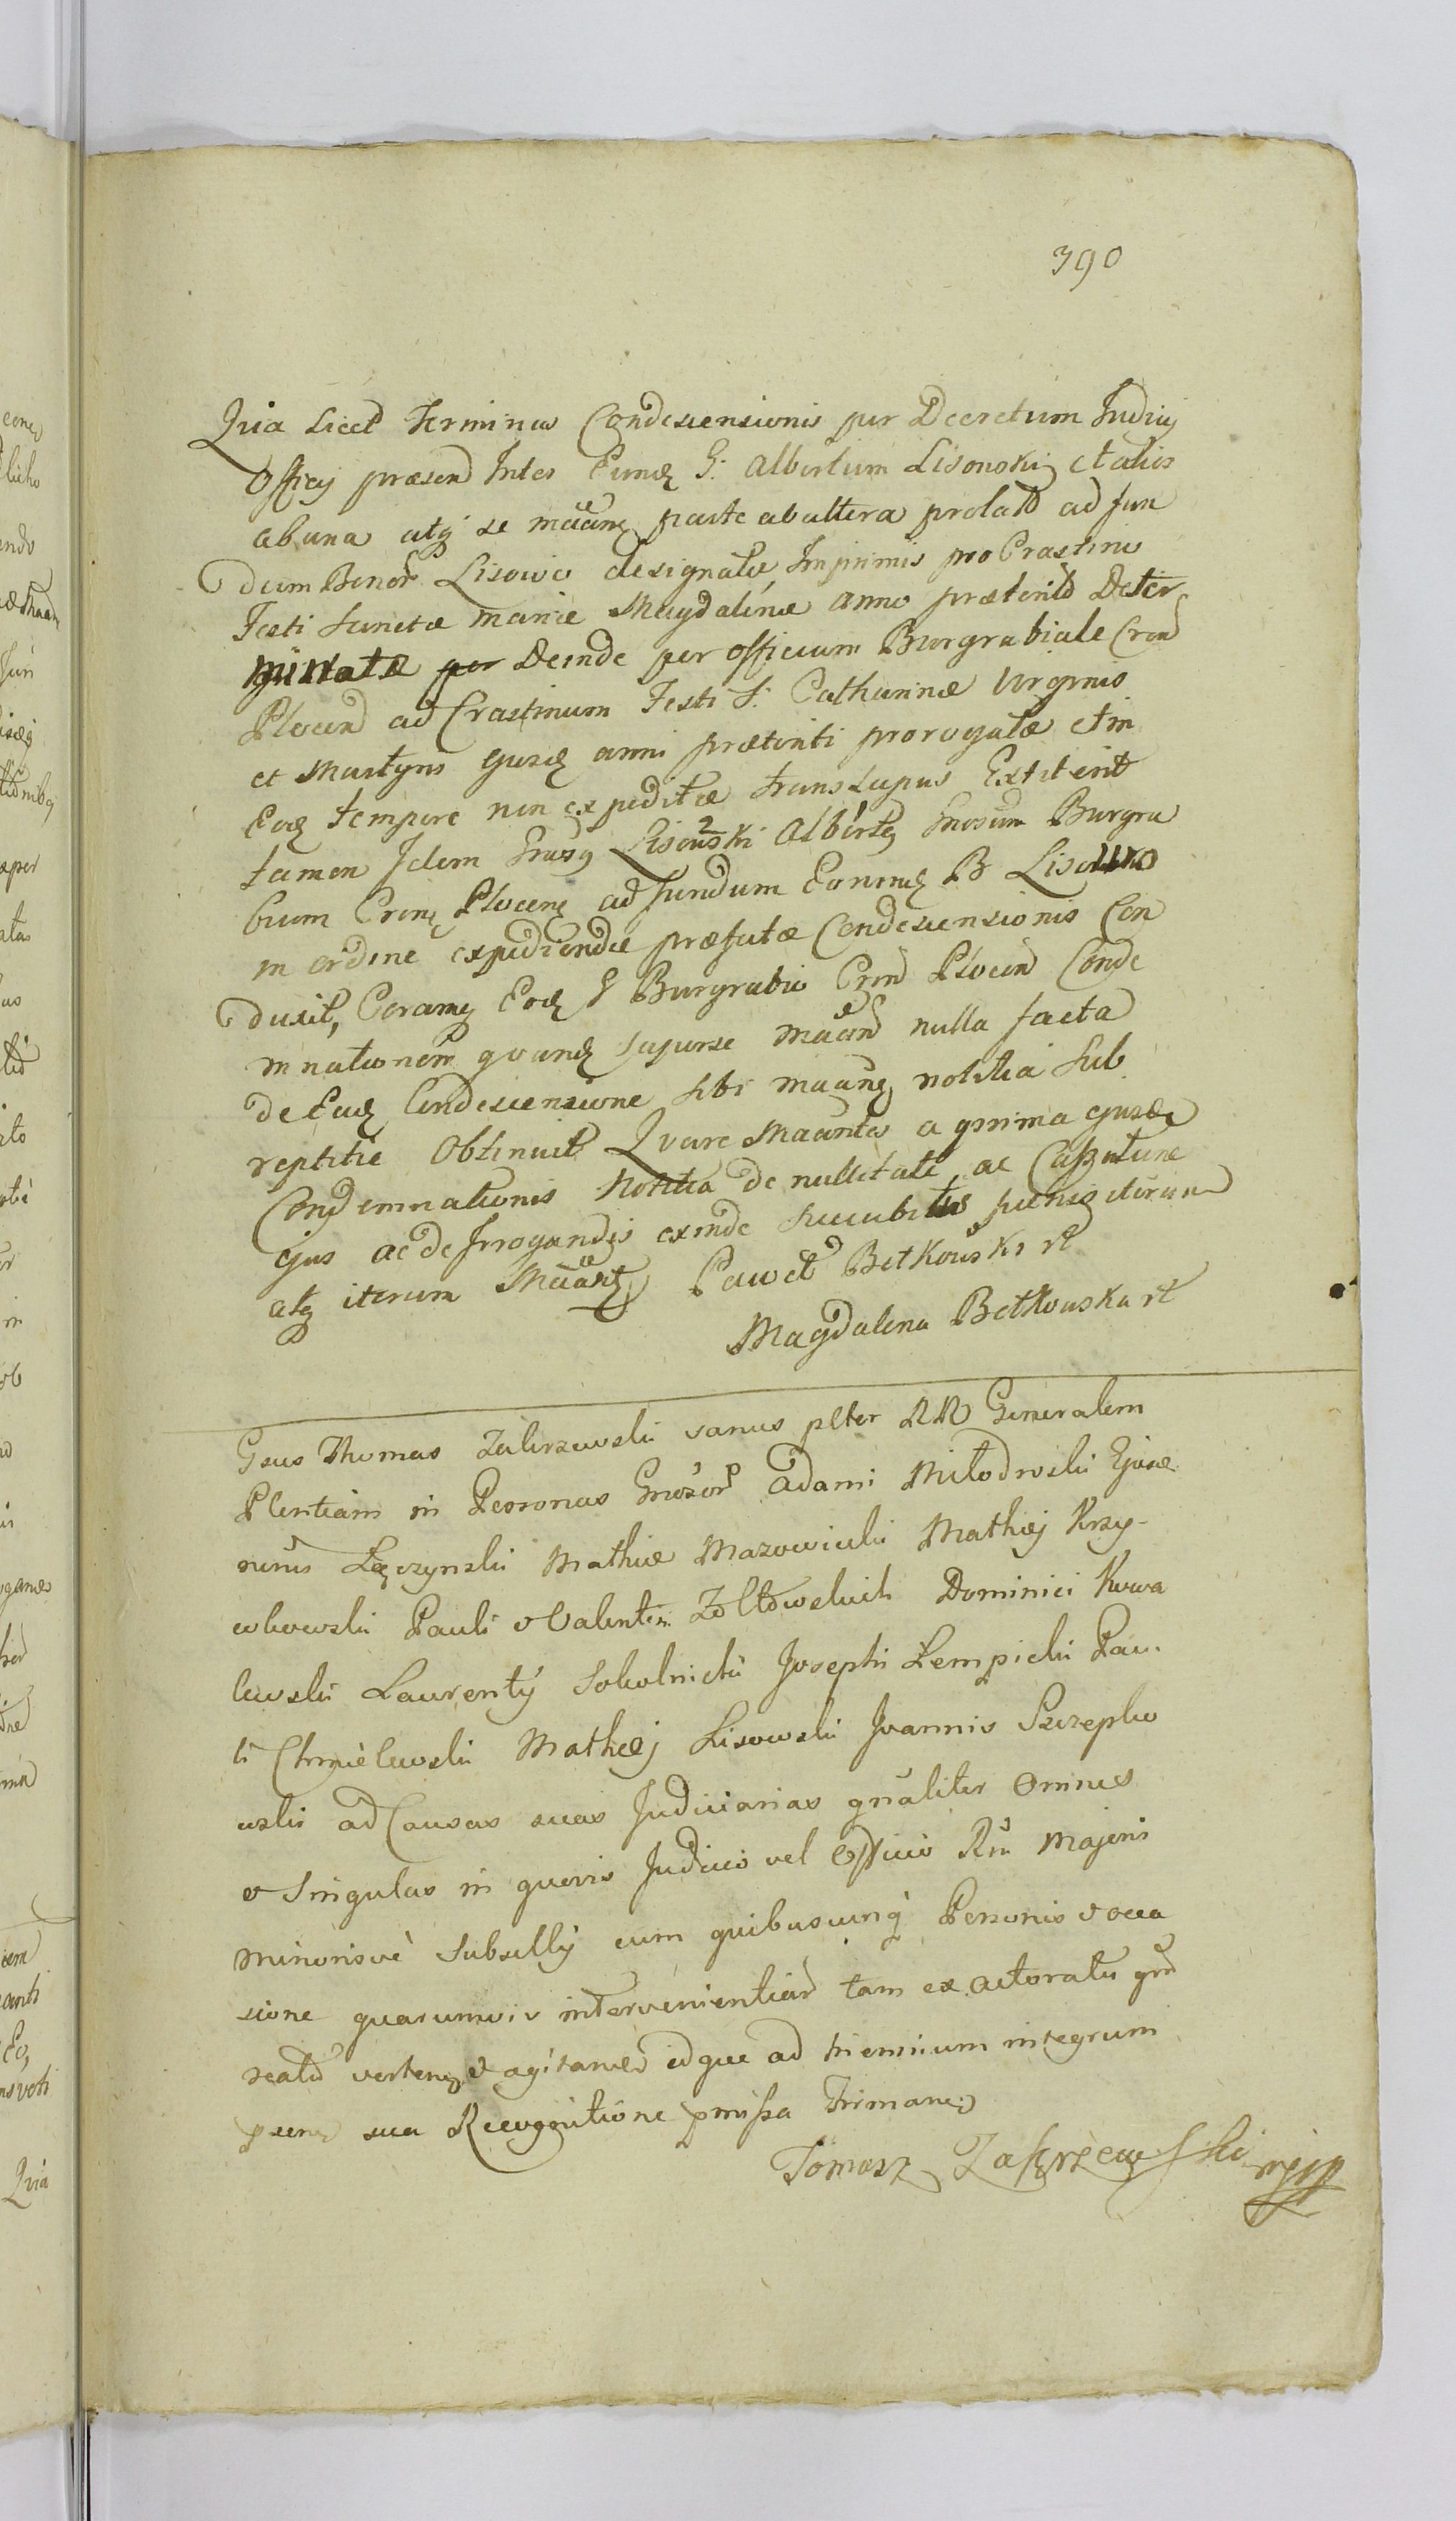 390
Quia licet Terminus Condescensionis per Decretum Judicij
Officij præsend Inter Eumđ G. Albertum Lisowski et alios
ab una atq se mãane parte ab altera prolatd ad fun
dum Bonor Lisowo designatæ Imprimis pro Crastino
Festi Sanctæ Mariæ Magdalenæ anno præteritd Deter
minatæ per Deinde per officium Burgrabiale Crend
Plocend ad Crastinum Festi S. Catharinæ Virginis
et Martyris ejusđ anni præteriti prorogatæ et in
Eođ tempore non expeditæ translapsus Extiterit
tamen Idem Gnrosq Lisowski Albertq Gnosum Burgra
bium Crenę Plocenę ad fundum Eorumđ B Lisowo
in ordine expediendæ præfatæ Condescensionis Con
duxit, Coramq Eođ G Burgrabio Crend Plocend Conde
mnationem quamđ super se mãand nulla facta
de Eađ Condescensione sibi mãanę notitia sub
reptitie Obtinuit Quare Mãantes a prima ejusđ
Condemnationis notitia de nullitate ac Cassatione
ejus ac de Irrogandis exinde succubitus pœnis iterum
atq iterum Mãantę Paweł Betkowski rł
Magdalena Betkowska rł
Gsus Thomas Zakrzewski sanus plter RR Generalem
Plentiam in Personas Gnosor Adami Miłodroski Ejusđ
nenis Łęczynski Mathiæ Mazowiecki Mathiæj Krzy-
wkowski Pauli & Valentin Zołtowskich Dominici Kowa
lewski Laurentÿ Sokolnicki Josephi Łempicki Pau
li Chmielewski Mathæj Lisowski Joannis Szczepko
wski ad Causas suas Judiciarias gnãliter Omnes
& Singulas in quovis Judicio vel Officio Rni Majoris
minorisve Subsellÿ cum quibuscunq Personis & occa
sione quarumvis intervenientiar tam ex actoratu qm
reatu vertenę & agitanđ idque ad triennium integrum
psenę sua Recognitione pmissa Firmanę
Tomasz Zakrzewski mpp